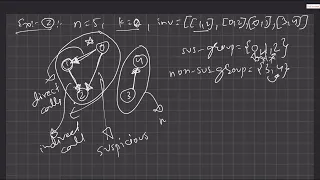 n=5, k=0, inv=[[1,2],[0,2],[0,1],[3,4]]
sus-group={0,1,2}
non-sus group={3,4}
0
4
2
3
direct calls
indirect calls
suspicious